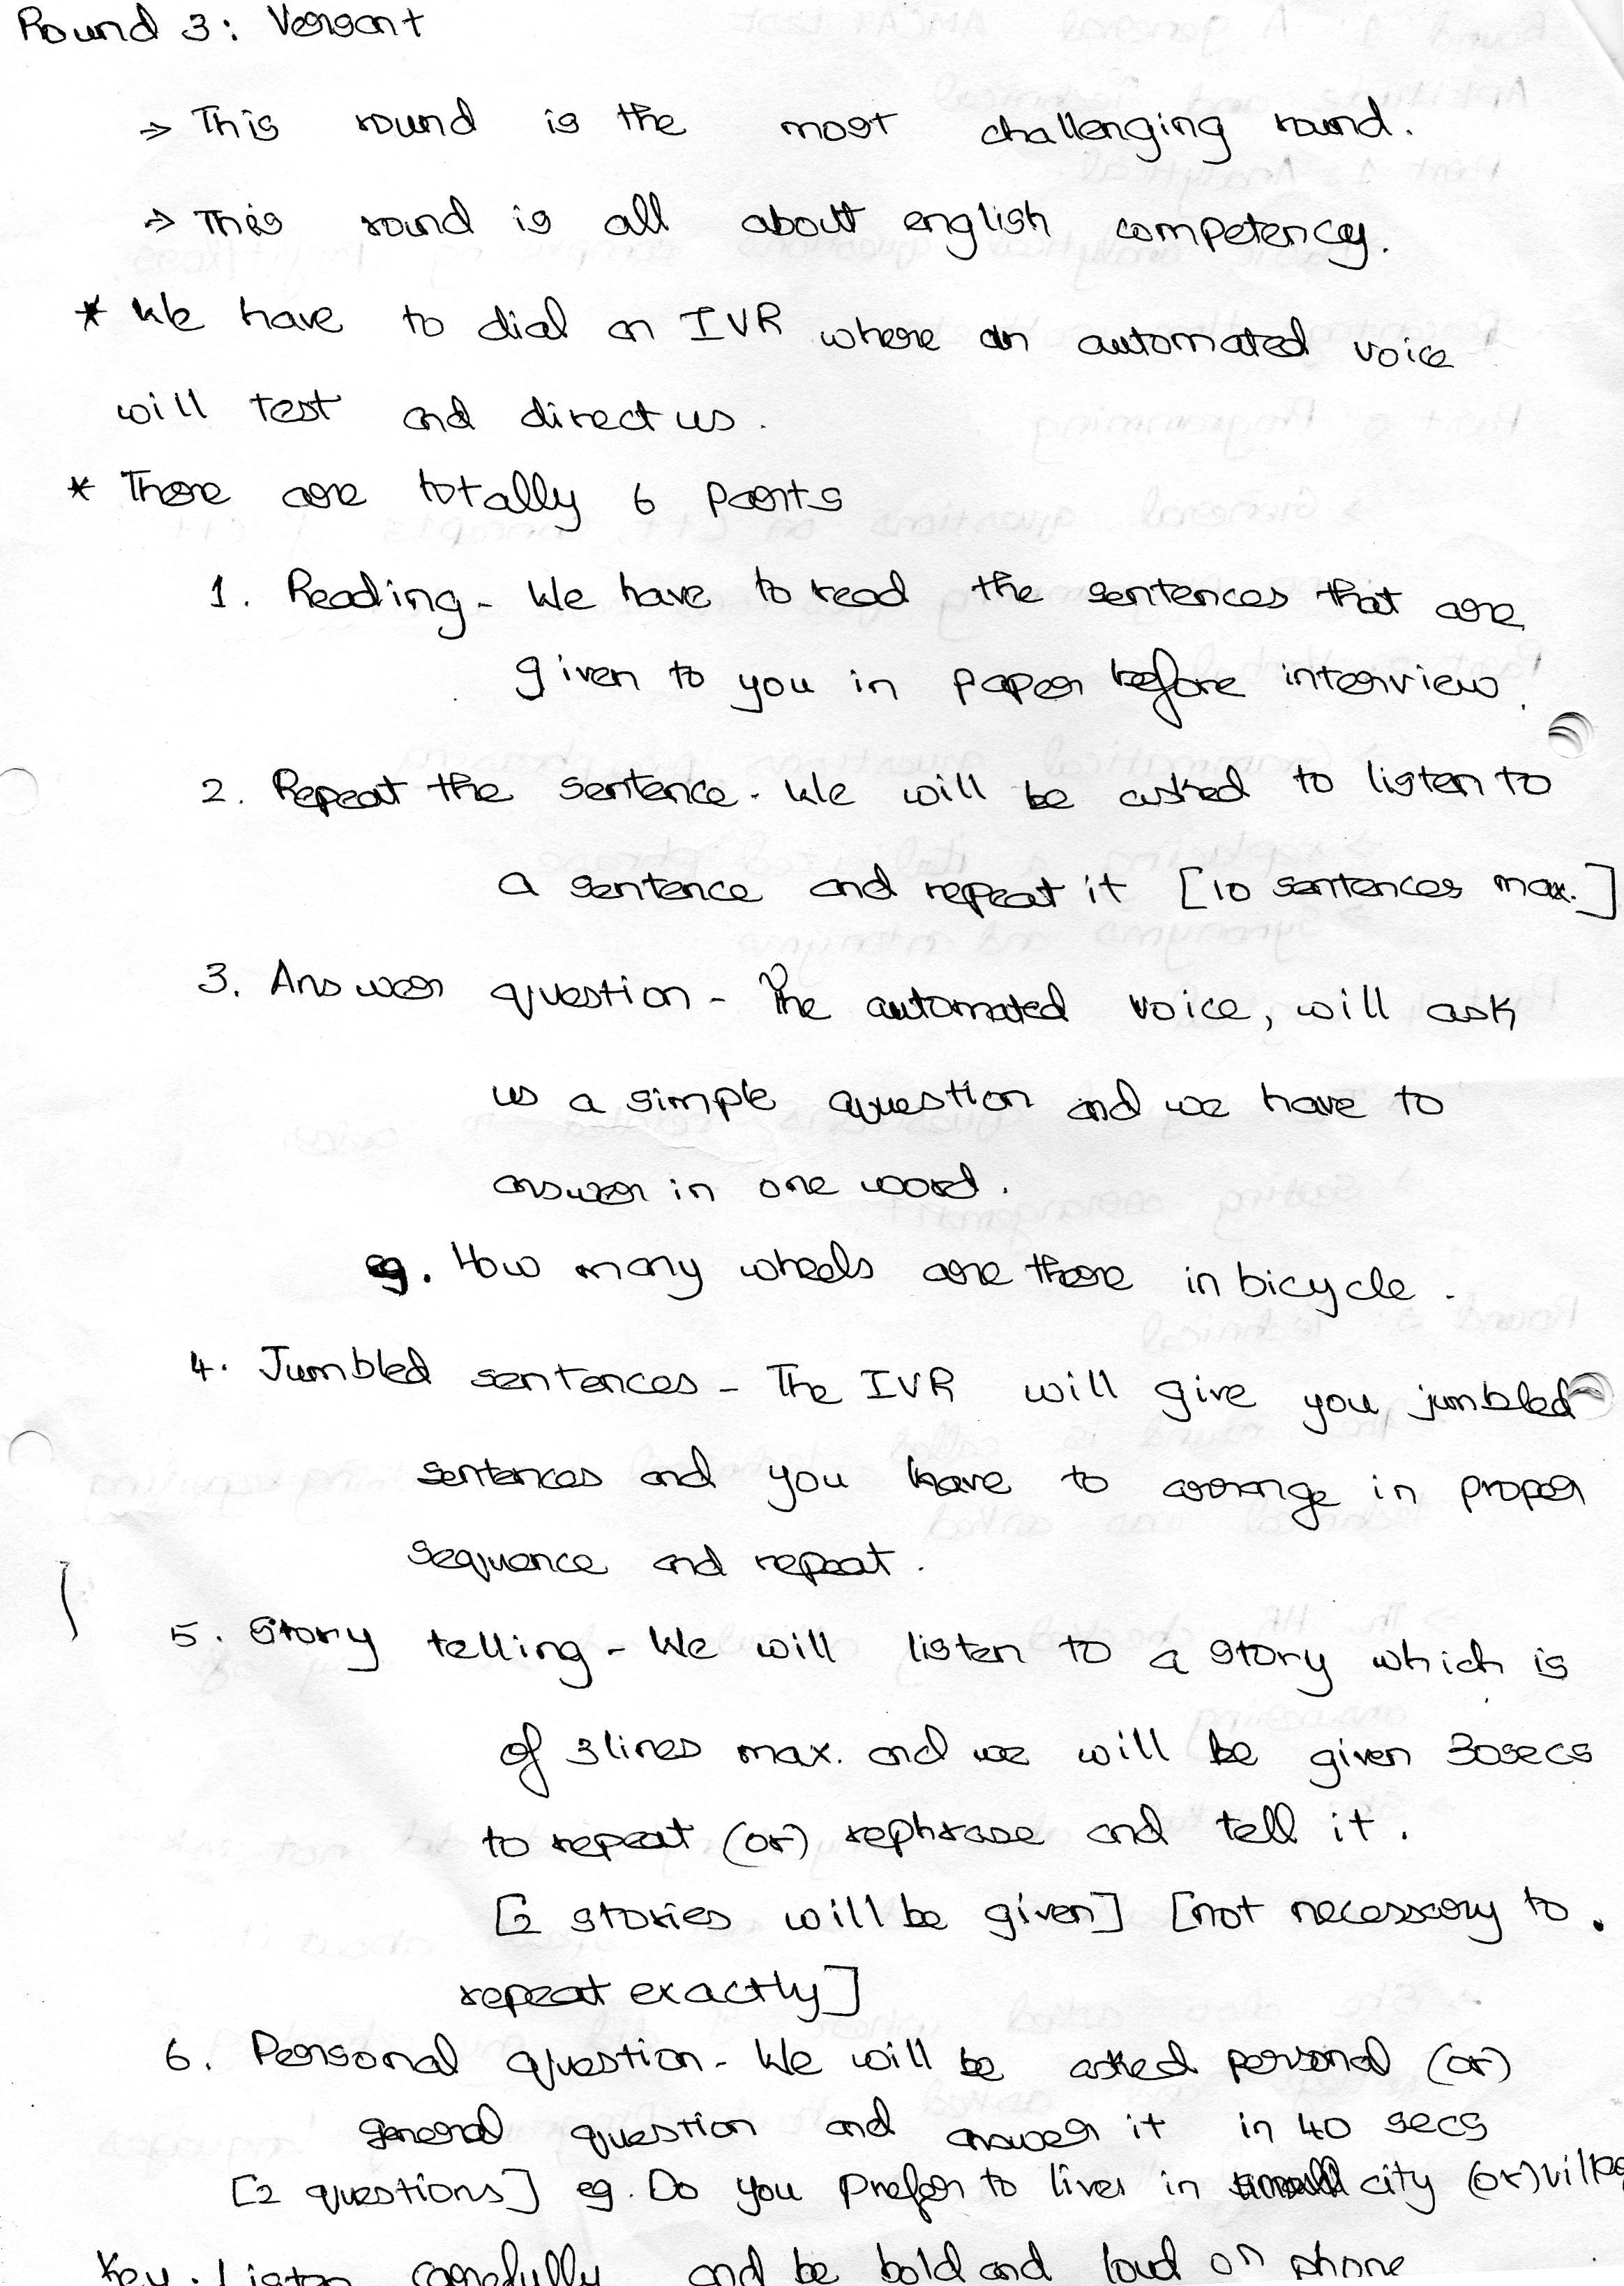 Round 3: Versant
⇒ This round is the most challenging round.
⇒ This round is all about english competency.
* We have to dial an IVR where an automated voice
will test and direct us.
* There are totally 6 parts
1. Reading - We have to read the sentences that are
given to you in paper before interview.
2. Repeat the sentence - We will be asked to listen to
a sentence and repeat it [10 sentences max.]
3. Answer question - The automated voice, will ask
us a simple question and we have to
answer in one word.
eg. How many wheels are there in bicycle.
4. Jumbled sentences - The IVR will give you jumbled
sentences and you have to arrange in proper
sequence and repeat.
5. Story telling - We will listen to a story which is
of 3lines max. and we will be given 30secs
to repeat (or) rephrase and tell it.
[2 stories will be given] [not necessary to
repeat exactly]
6. Personal question - We will be asked personal (or)
general question and answer it in 40 secs
[2 questions] eg. Do you prefer to live in city (or)
Key: Listen carefully and be bold and loud on phone